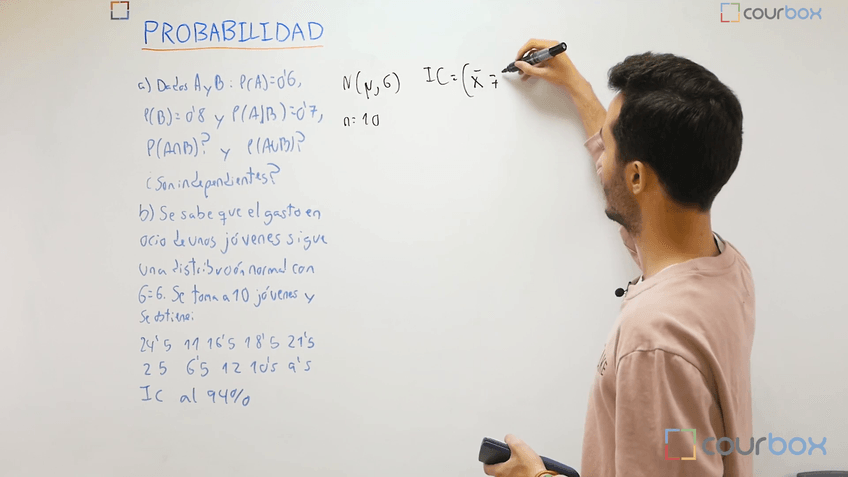 courbox
PROBABILIDAD
a) Dados A y B: P(A)=0'6,
P(B)=0'8 y P(A|B)=0'7,
P(A∩B)? y P(A∪B)?
¿Son independientes?
b) Se sabe que el gasto en
ocio de unos jóvenes sigue
una distribución normal con
σ=6. Se toma a 10 jóvenes y
se obtiene:
24'5 11 16'5 18'5 21'5
25 6'5 12 10'5 9'5
IC al 94%
N(μ,6) IC=(x̄ -
n=10
courbox